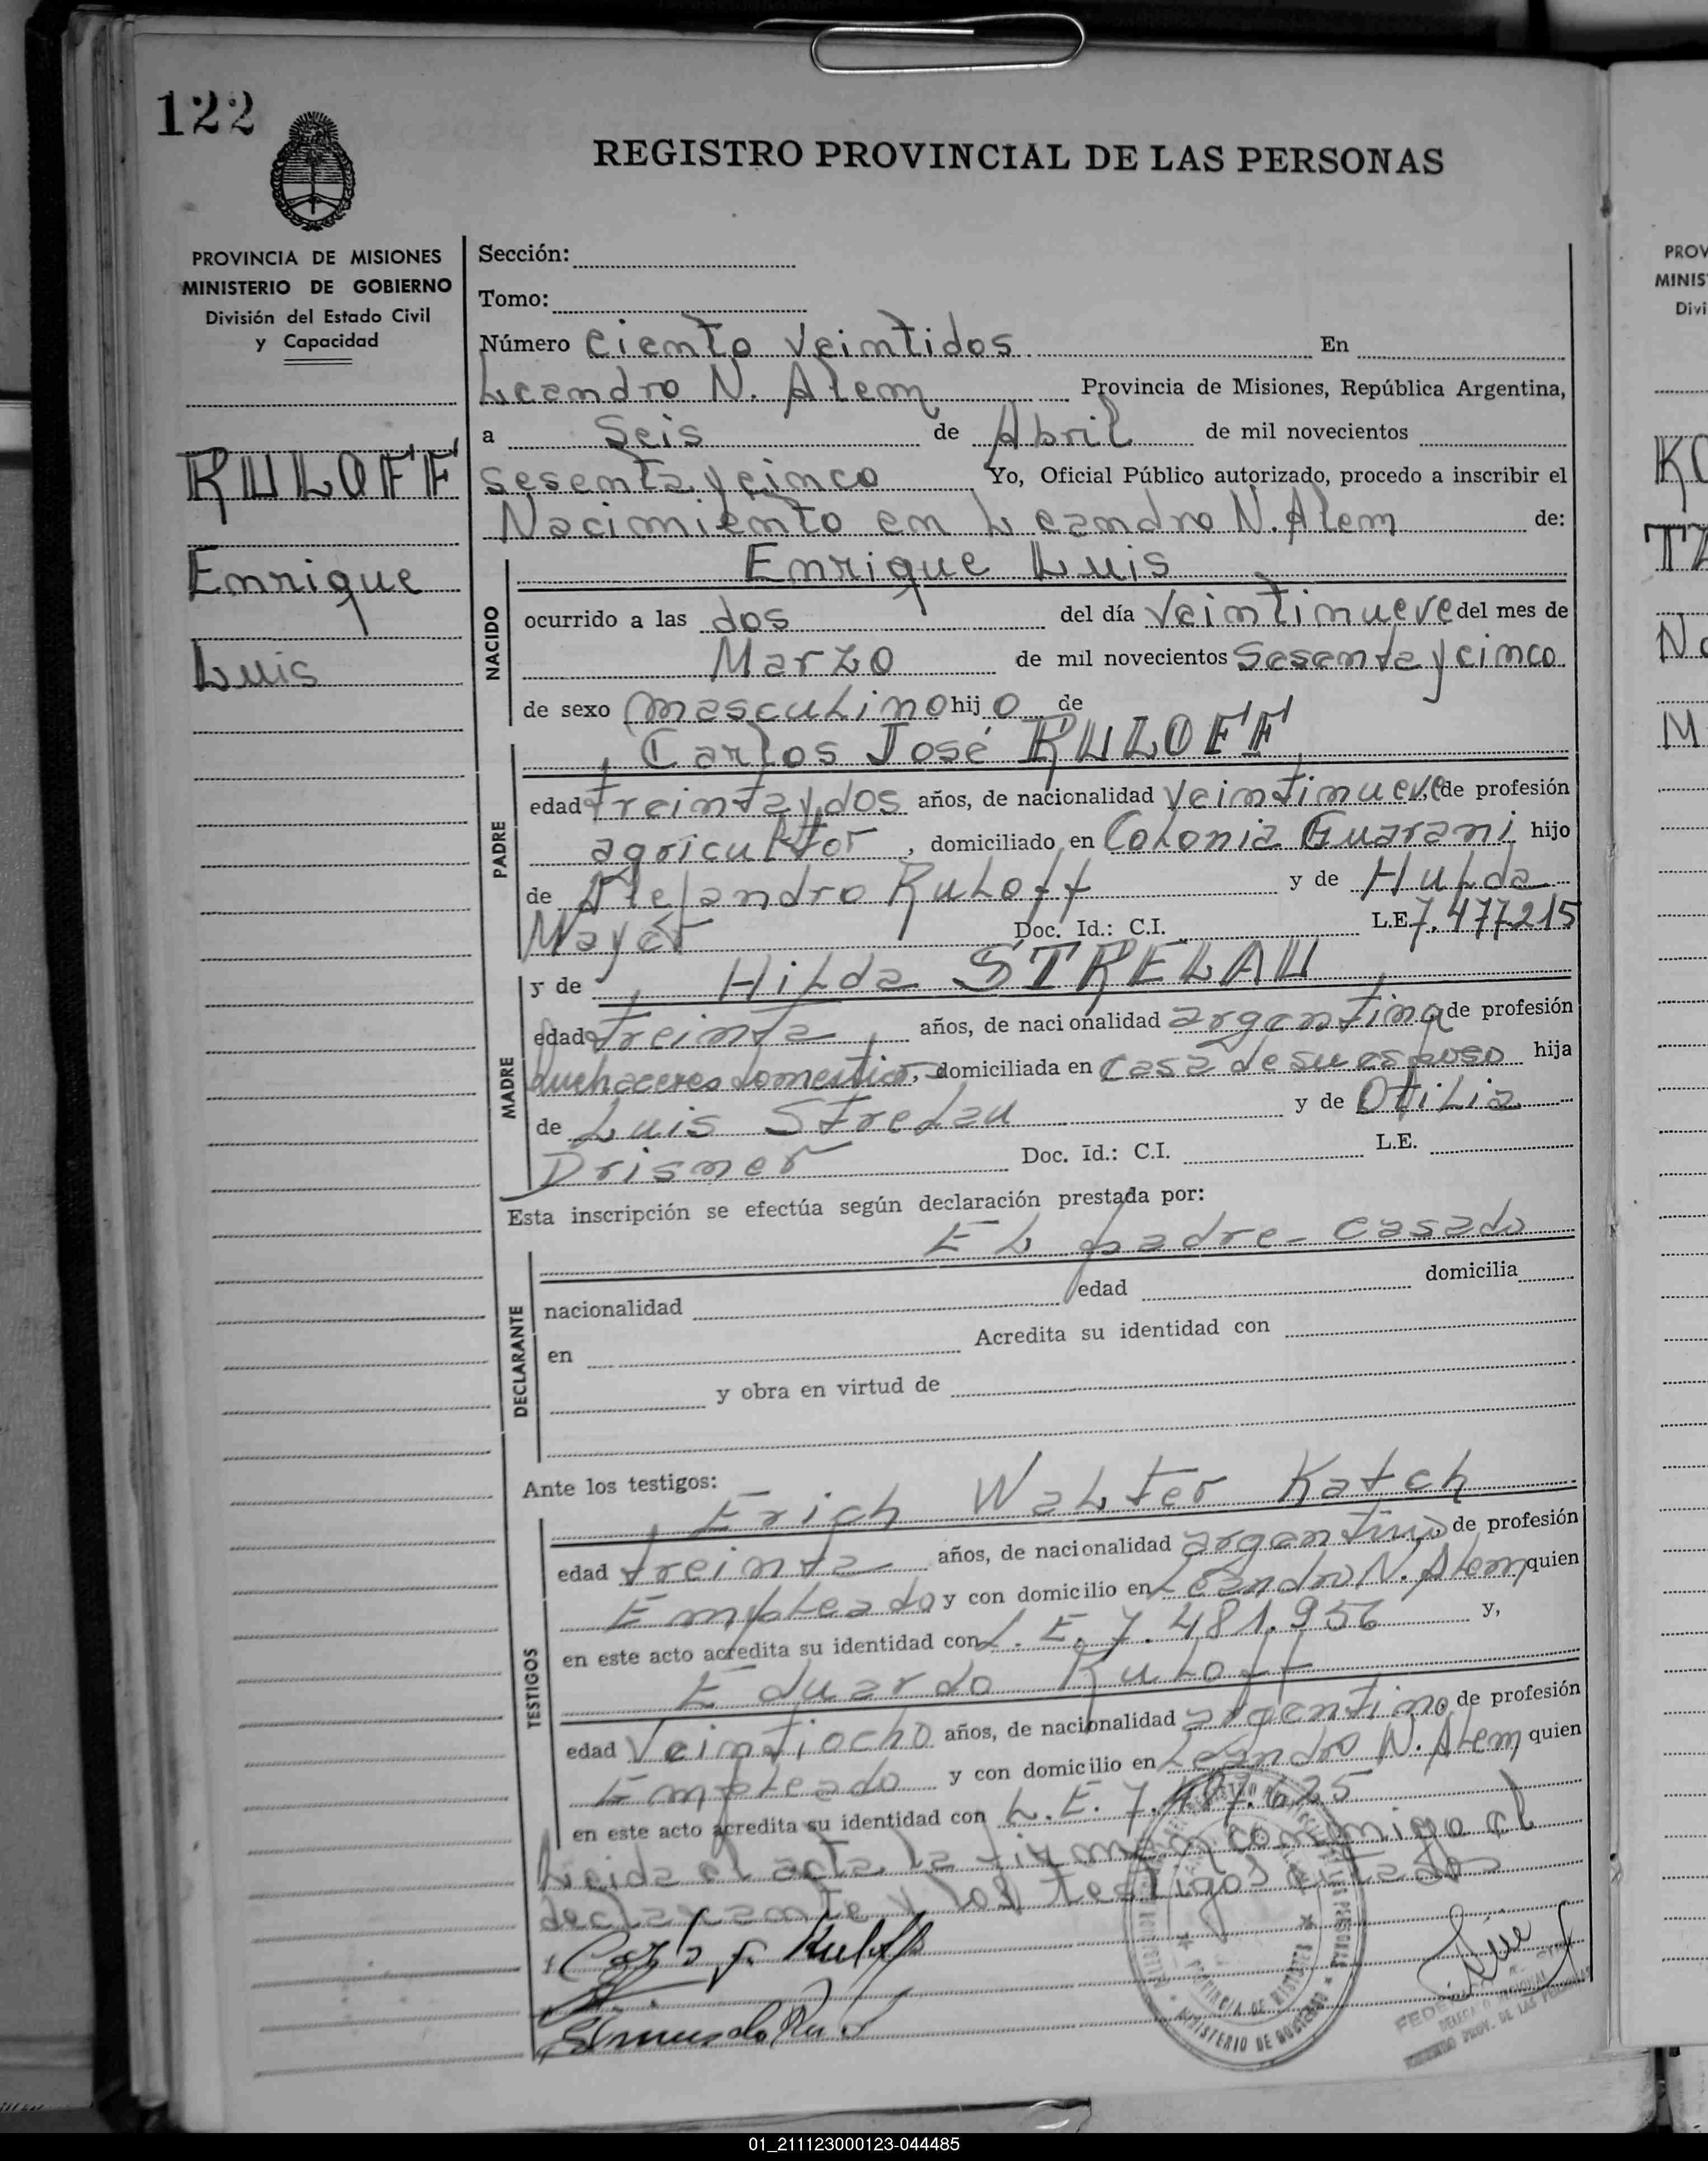 122
REGISTRO PROVINCIAL DE LAS PERSONAS
PROVINCIA DE MISIONES
MINISTERIO DE GOBIERNO
División del Estado Civil
y Capacidad
RULOFF
Enrique
Luis
Sección:
Tomo:
Número ciento veintidos En
Leandro N. Alem Provincia de Misiones, República Argentina,
a Seis de Abril de mil novecientos
sesenta y cinco Yo, Oficial Público autorizado, procedo a inscribir el
Nacimiento en Leandro N. Alem de:
NACIDO
Enrique Luis
ocurrido a las dos del día veintinueve del mes de
Marzo de mil novecientos sesenta y cinco
de sexo masculino hijo de
PADRE
Carlos José RULOFF
edad treinta y dos años, de nacionalidad veintinueve de profesión
agricultor, domiciliado en Colonia Guarani hijo
de Alejandro Ruloff y de Hulda
Mayer Doc. Id.: C.I. L.E. 7.477.215
MADRE
y de Hilda STRELAU
edad treinta años, de nacionalidad argentina de profesión
quehaceres domestico, domiciliada en casa de su esposo hija
de Luis Strelau y de Otilia
Drismer Doc. Id.: C.I. L.E.
Esta inscripción se efectúa según declaración prestada por:
DECLARANTE
El padre - casado
nacionalidad edad domicilia
en Acredita su identidad con
y obra en virtud de
Ante los testigos:
TESTIGOS
Erich Walter Katch
edad treinta años, de nacionalidad argentino, de profesión
Empleado y con domicilio en Leandro N. Alem quien
en este acto acredita su identidad con L. E. 7.481.956 y,
Eduardo Ruloff
edad Veintiocho años, de nacionalidad argentino, de profesión
Empleado y con domicilio en Leandro N. Alem quien
en este acto acredita su identidad con L.E. 7.487.625
Leida el acta, la firman conmigo el
declarante y los testigos
Carlos J. Ruloff
PROVINCIA DE MISIONES
MINISTERIO DE GOBIERNO
PROV. DE LAS PERSONAS
PROV
MINIS
Divi
01_211123000123-044485